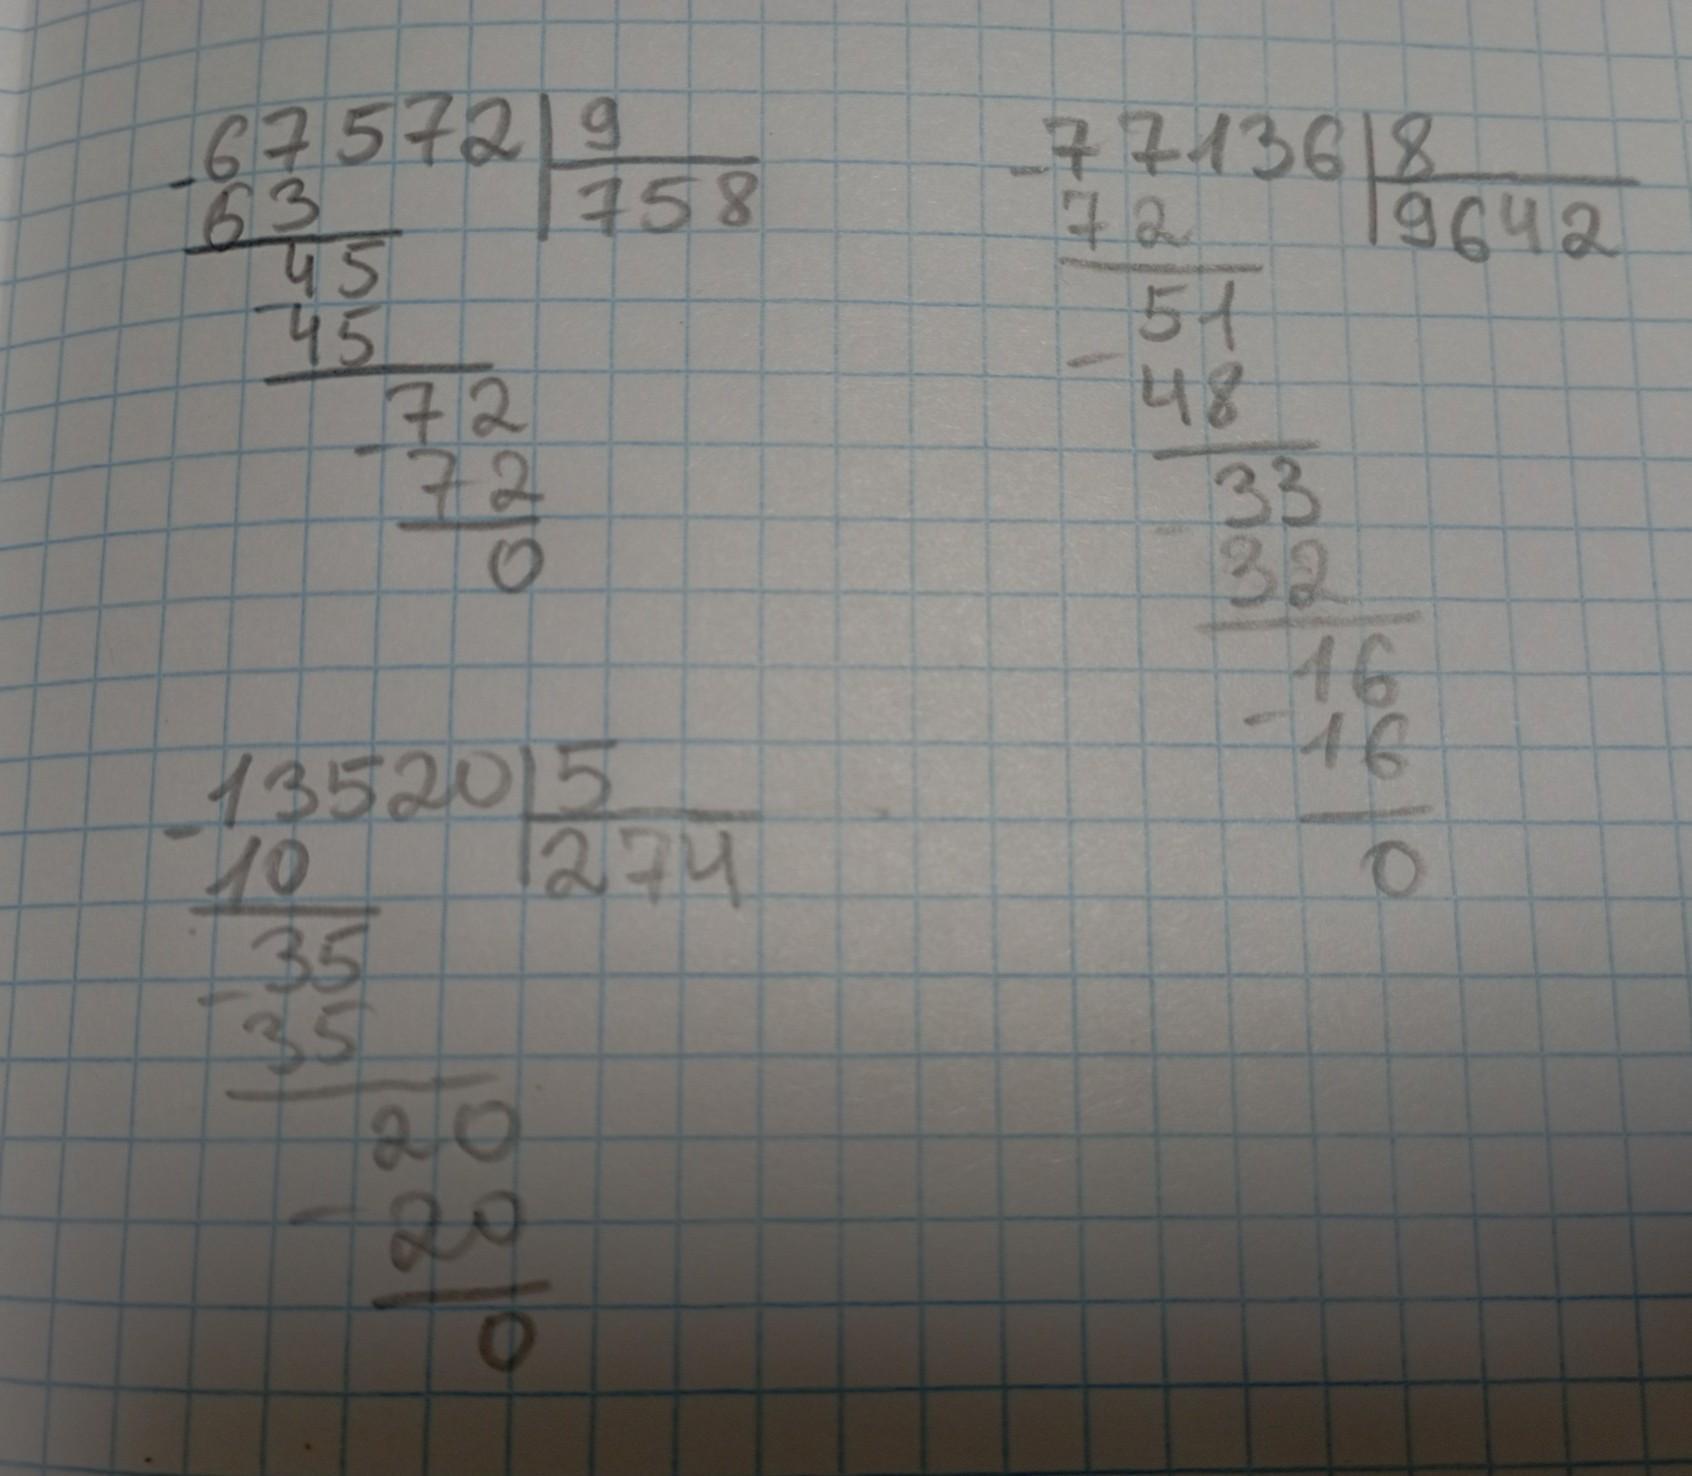 - 67572 | 9
63 | 758
45
- 45
72
- 72
0
- 77136 | 8
72 | 9642
51
- 48
33
- 32
16
- 16
0
- 13520 | 5
10 | 274
35
- 35
20
- 20
0